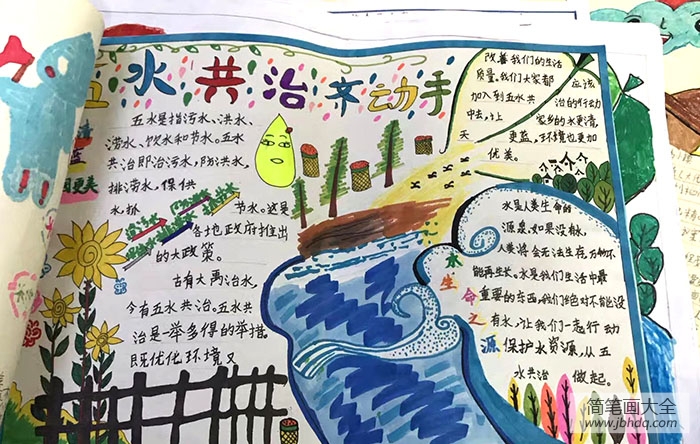 五水共治齐动手
五水是指污水、洪水、
涝水、饮水和节水。五水
共治即治污水,防洪水,
排涝水,保供
水,抓 节水。这是
各地政府推出
的大政策。
古有大禹治水,
今有五水共治。五水共
治是一举多得的举措,
既优化环境又
改善我们的生活
质量。我们大家都应该
加入到五水共治的行动
中去,让家乡的水更清,
天更蓝,环境也更加
优美。
水是人类生命的
源泉,如果没有水,
人类将会无法生存,万物不
能再生长。水是我们生活中最
重要的东西,我们绝对不能没
有水,让我们一起行动
保护水资源,从五
水共治做起。
水生命之源
蓝
更美
简笔画大全
www.jbhdq.com